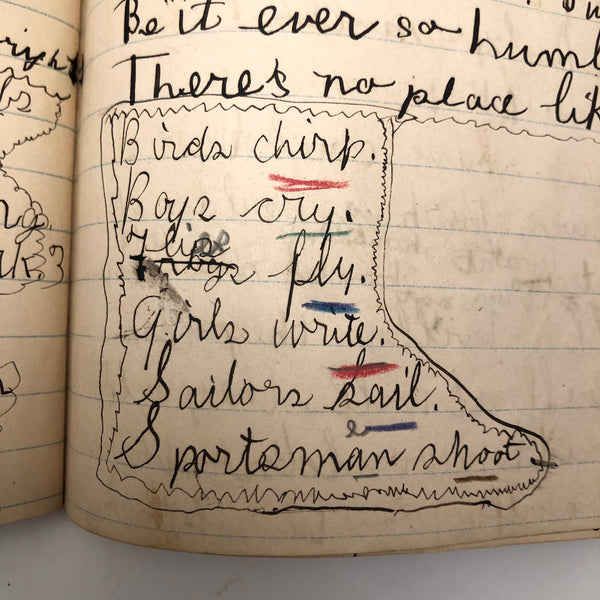 Be it ever so humbl
There's no place lik
Birds chirp.
Boys cry.
Flies fly.
Girls write.
Sailors sail.
Sportsman shoot
e